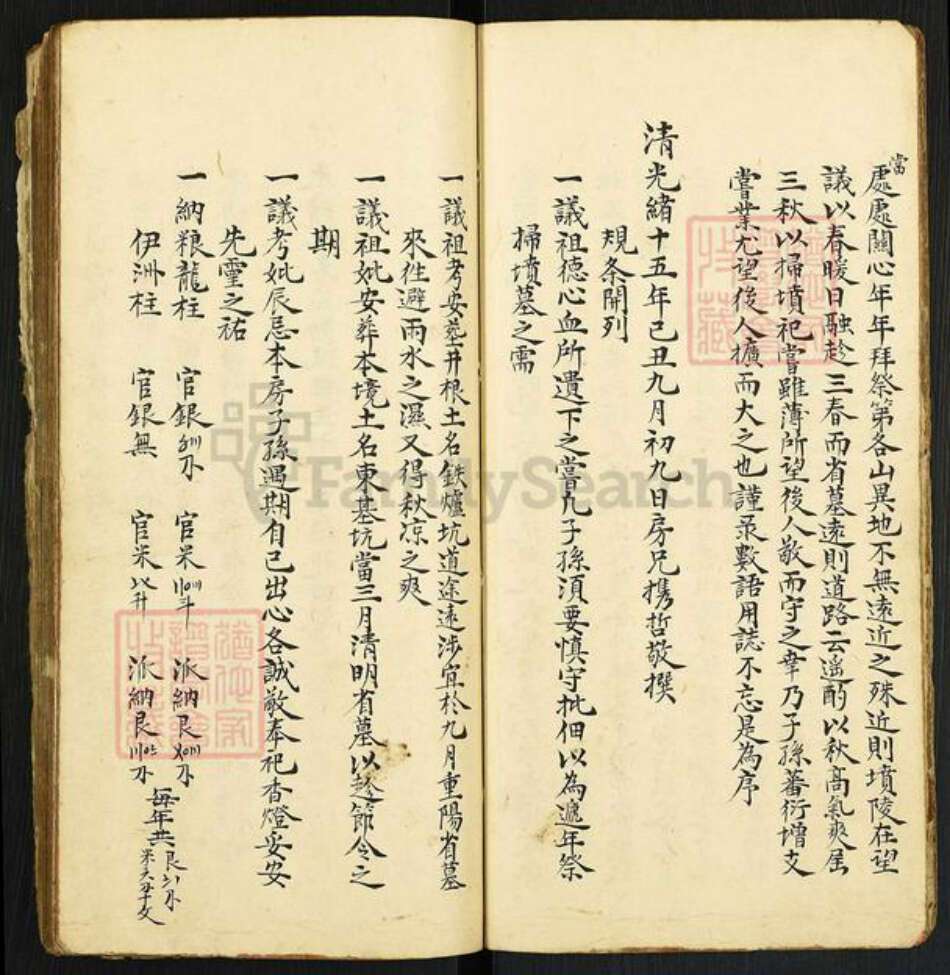 當
處處關心年年拜祭第各山異地不無遠近之殊近則墳陵在望
議以春暖日融趁三春而省墓遠則道路云遙酌以秋高氣爽屆
三秋以掃墳祀嘗雖薄所望後人敬而守之幸乃子孫蕃衍增支
嘗業尤望後人擴而大之也謹录數語用誌不忘是為序
清光緒十五年己丑九月初九日房兄携哲敬撰
規条開列
一議祖德心血所遺下之嘗九子孫須要慎守批佃以為遞年祭
掃墳墓之需
一議祖考安塟井根土名鉄爐坑道途遠涉宜於九月重陽省墓
來徃避雨水之濕又得秋凉之爽
一議祖妣安葬本境土名東基坑當三月清明省墓以趁節令之
期
一議考妣辰忌本房子孫遇期自己出心各誠敬奉祀香燈妥安
先靈之祐
一納粮龍柱 官銀 官米 斗 派納艮
伊洲柱 官銀無 官米 升 派納艮
每年共
艮
米
FamilySearch